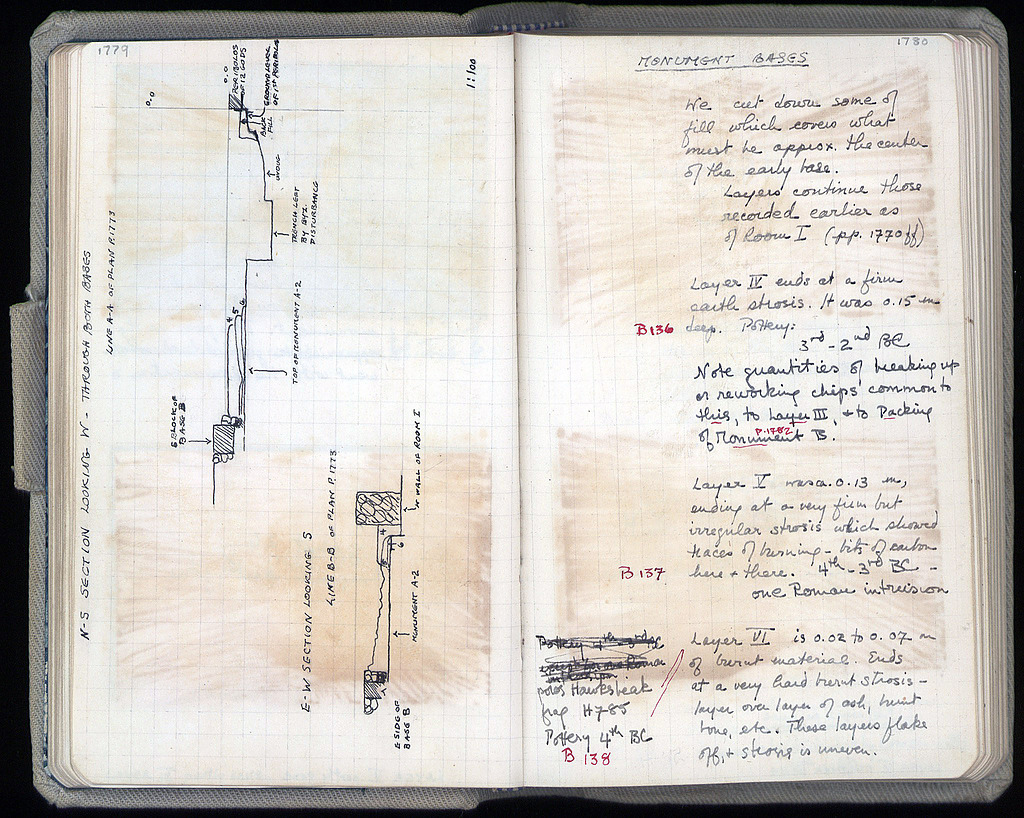 1779
N-S SECTION LOOKING W - THROUGH BOTH BASES
LINE A-A OF PLAN P.1773
1:100
0.0
0.0
PERIBOLOS
OF 12 GODS
GROUND LEVEL
OF 1ST PERIBOLOS
FILL
TRENCH LEFT
BY BYZ.
DISTURBANCE
4
5
6
TOP OF MONUMENT A-2
E BLOCK OF
BASE B
E-W SECTION LOOKING S
LINE B-B OF PLAN P.1773
N WALL OF ROOM I
4
6
MONUMENT A-2
E SIDE OF
BASE B
1780
MONUMENT BASES
We cut down some of
fill which covers what
must be approx. the center
of the early base.
Layers continue those
recorded earlier as
of Room I (pp. 1770 ff)
Layer IV ends at a firm
earth strosis. It was 0.15 m
B136 deep. Pottery:
3rd - 2nd BC
Note quantities of breaking up
or reworking chips common to
this, to Layer III, & to Packing
of Monument B.
P.1782
Layer V was a. 0.13 m,
ending at a very firm but
irregular strosis which showed
traces of burning - bits of carbon
B137 here & there. 4th - 3rd BC -
one Roman intrusion
Layer VI is 0.02 to 0.07 m
of burnt material. Ends
at a very hard burnt strosis -
layer over layer of ash, burnt
bone, etc. These layers flake
off, & strosis is uneven.
Pottery 4th - 3rd BC
except for one Roman
intrusion
poros Hawksbeak
frag H785
Pottery 4th BC
B 138